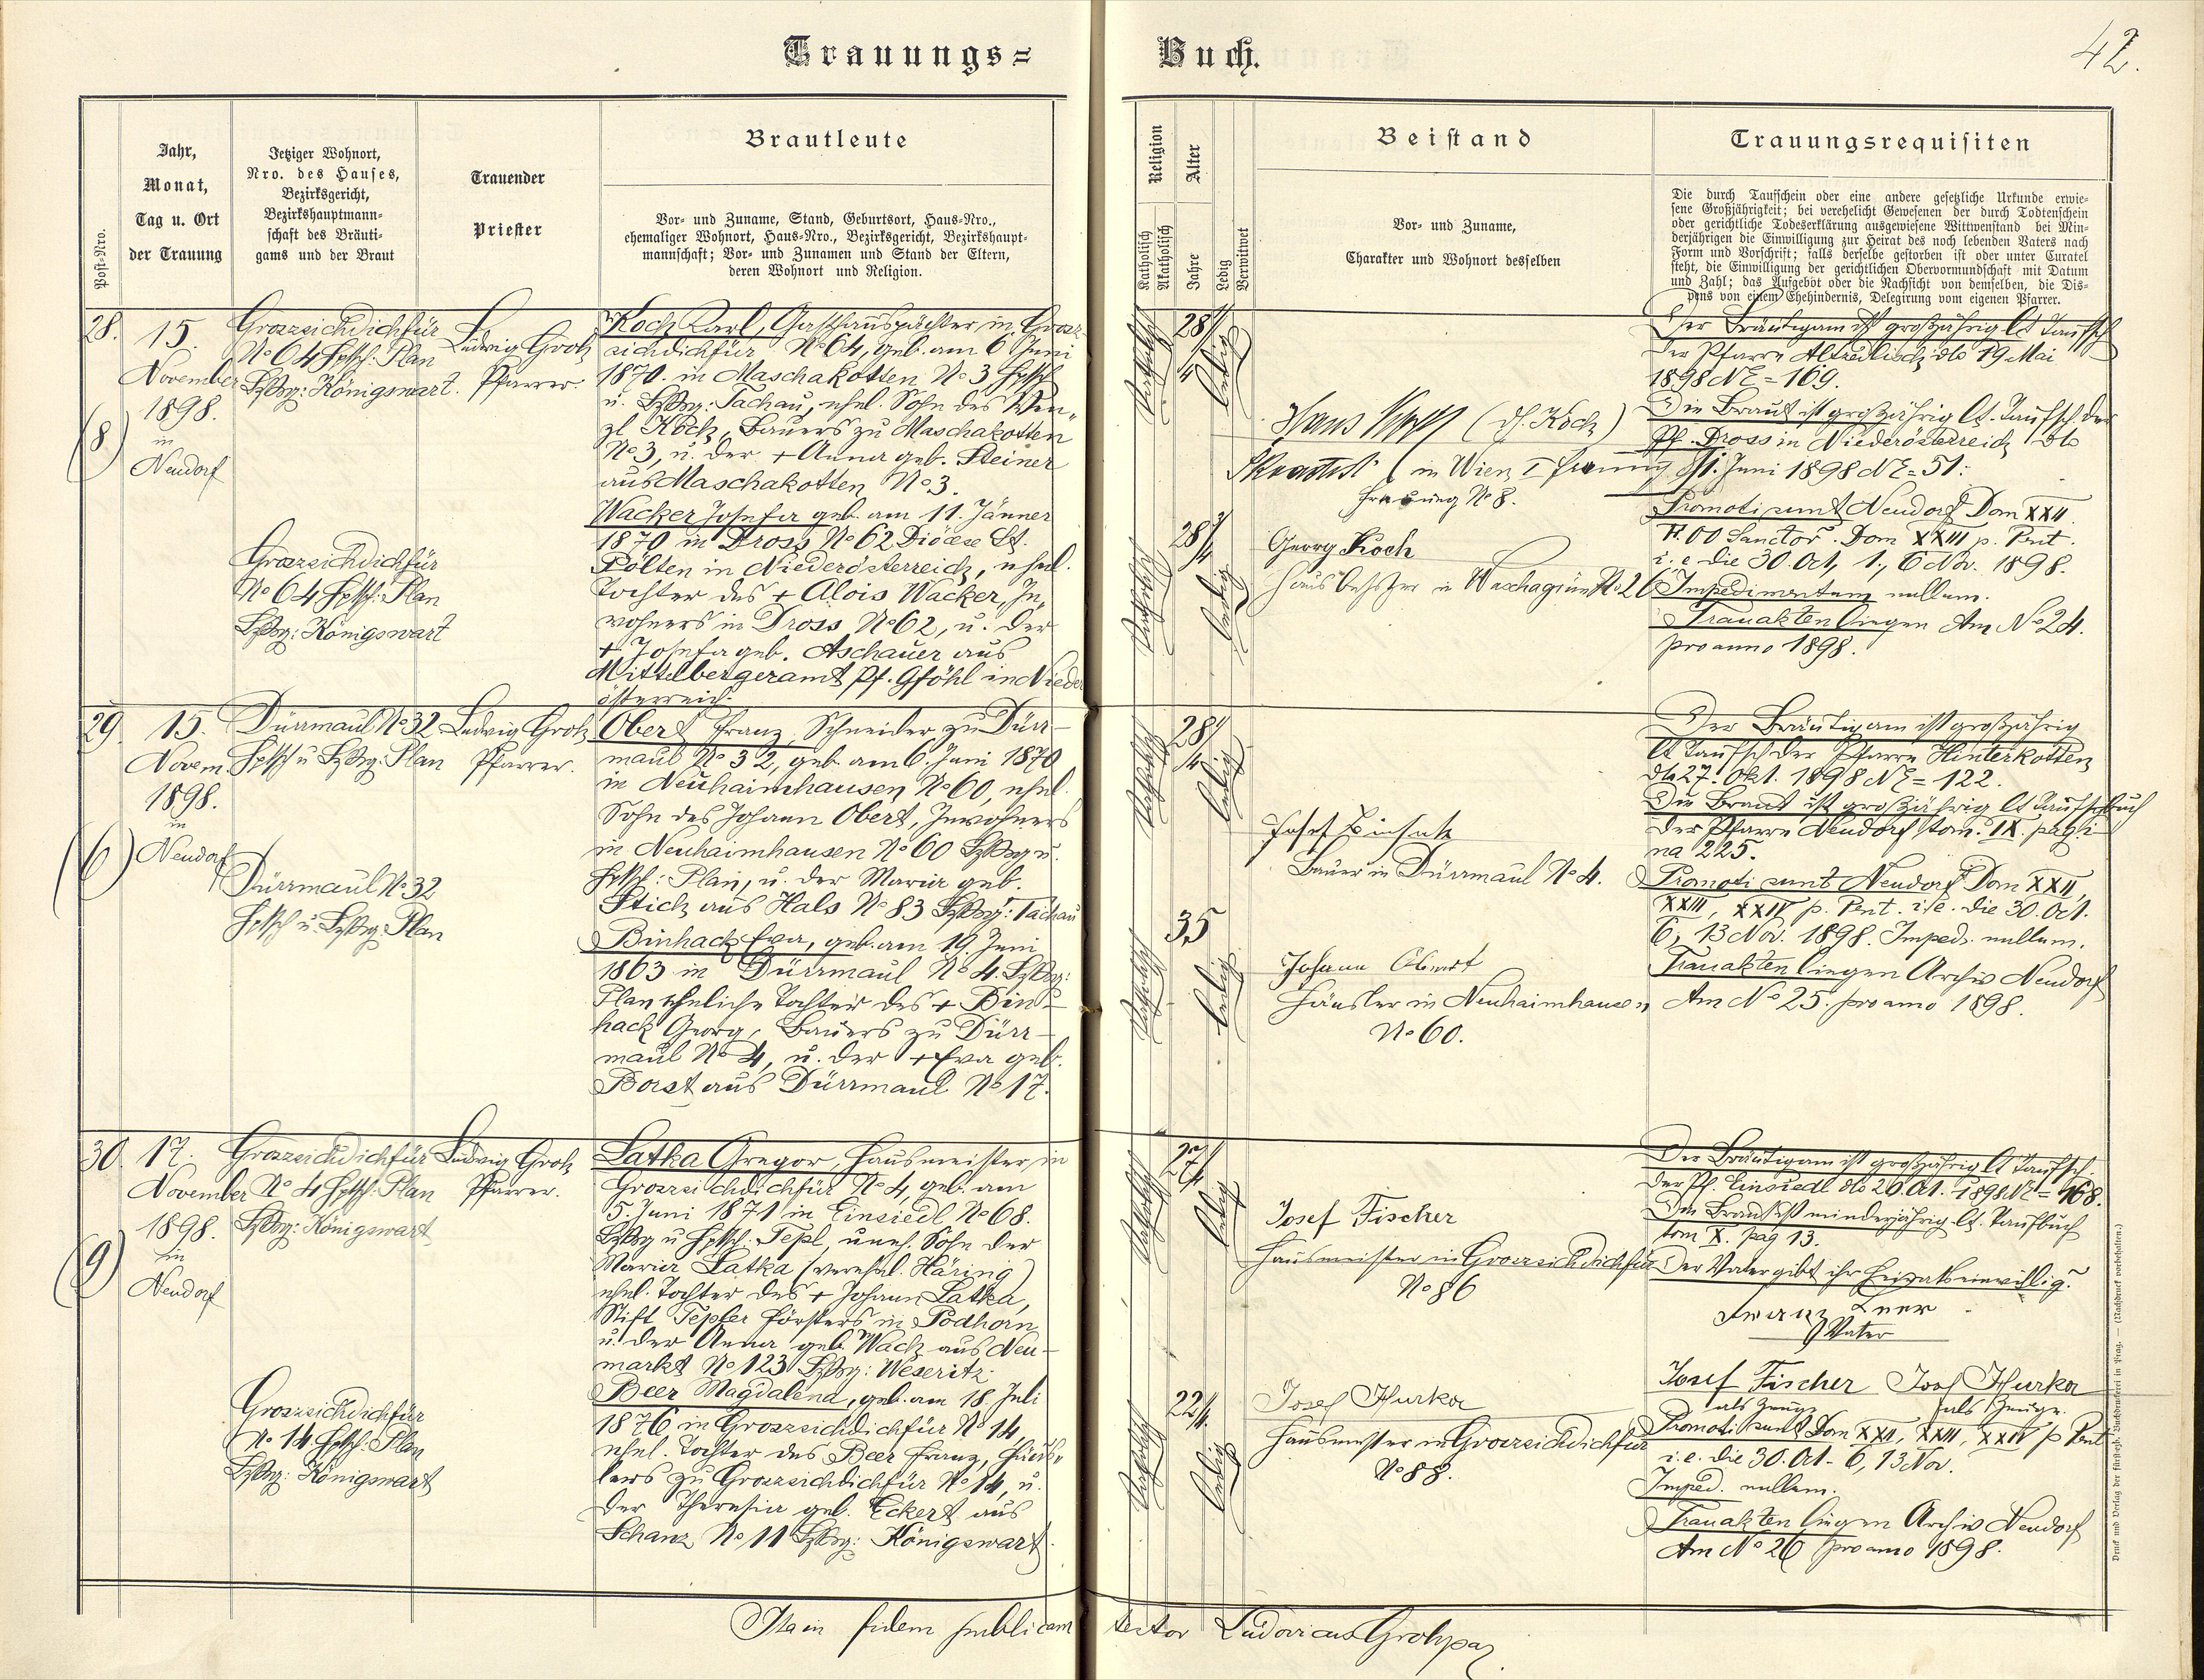 Trauungs=
Buch.
42.
Post-Nro.
Jahr,
Monat,
Tag u. Ort
der Trauung
Jetziger Wohnort,
Nro. des Hauses,
Bezirksgericht,
Bezirkshauptmann-
schaft des Bräuti-
gams und der Braut
Trauender
Priester
Brautleute
Vor- und Zuname, Stand, Geburtsort, Haus-Nro.,
ehemaliger Wohnort, Haus-Nro., Bezirksgericht, Bezirkshaupt-
mannschaft; Vor- und Zunamen und Stand der Eltern,
deren Wohnort und Religion.
Religion
Katholisch
Akatholisch
Alter
Jahre
Ledig
Verwitwet
Beistand
Vor- und Zuname,
Charakter und Wohnort desselben
Trauungsrequisiten
Die durch Taufschein oder eine andere gesetzliche Urkunde erwie-
sene Großjährigkeit; bei verehelicht Gewesenen der durch Todtenschein
oder gerichtliche Todeserklärung ausgewiesene Wittwenstand bei Min-
derjährigen die Einwilligung zur Heirat des noch lebenden Vaters nach
Form und Vorschrift; falls derselbe gestorben ist oder unter Curatel
steht, die Einwilligung der gerichtlichen Obervormundschaft mit Datum
und Zahl; das Aufgebot oder die Nachsicht von demselben, die Dis-
pens von einem Ehehindernis, Delegirung vom eigenen Pfarrer.
28.
15.
November
1898.
in
Neudorf
(8)
Groszsichdichfür
No 64 Hptsch: Plan
Bzksg: Königswart.
Groszsichdichfür
No 64 Hptsch: Plan
Bzksg: Königswart
Ludwig Groh
Pfarrer.
Koch Karl, Gasthauspächter in Grosz-
sichdichfür No 64, geb. am 6 Juni
1870. in Maschakotten No 3 Hptsch
u. Bzksg: Tachau, ehel. Sohn des Wen-
zl Koch, Bauers zu Maschakotten
No 3, u. der + Anna geb. Steiner
aus Maschakotten No 3.
Wacker Josefa geb. am 11. Jänner
1870 in Dross No 62 Diöcese St.
Pölten in Niederösterreich, ehel.
Tochter des + Alois Wacker, In-
wohners in Dross No 62, u. der
+ Josefa geb. Aschauer aus
Mittelbergeramt Pf. Gföhl in Nieder
österreich.
katholisch
28 1/4
ledig
katholisch
28 3/4
ledig
Hans (d. Koch)
in Wien I Freiung
Freiung No 8.
Georg Koch
Hausbesitzer in Waschagrün No 26
Der Bräutigam ist großjährig lt Taufsch
der Pfarre Altzedlisch dto 19 Mai
1898 NE = 169.
Die Braut ist großjährig lt. Taufsch der
Pf. Dross in Niederösterreich dto
1. Juni 1898 NE = 51.
Promoti sunt Neudorf Dom XXII.
F. OO Sanctor. Dom XXIII p. Pent.
i. e die 30. Oct, 1., 6 Nov. 1898.
Impedimentum nullum.
Trauakten liegen Am No 24.
pro anno 1898.
29.
15.
Novem.
1898.
in
Neudorf
(6)
Dürrmaul No 32
Hptsch u Bzksg: Plan
Dürrmaul No 32
Hptsch u. Bzksg: Plan
Ludwig Groh
Pfarrer.
Obert Franz, Schneider zu Dürr-
maul No 32, geb. am 6. Juni 1870
in Neuhaimhausen No 60, ehel.
Sohn des Johann Obert, Inwohners
in Neuhaimhausen No 60 Bzksg u.
Hptsch: Plan, u. der Maria geb.
Stich aus Hals No 83 Bzksg: Tachau
Binhack Eva, geb. am 19 Juni
1863 in Dürrmaul No 4. Bzksg:
Plan eheliche Tochter des + Bin-
hack Georg, Bauers zu Dürr-
maul No 4, u. der + Eva geb.
Borst aus Dürrmaul No 17.
katholisch
28 1/4
ledig
katholisch
35
ledig
Josef Binhack
Bauer in Dürrmaul No 4.
Johann Obert
Häusler in Neuhaimhausen
No 60.
Der Bräutigam ist großjährig
lt Taufsch der Pfarre Hinterkotten
dto 27. Okt. 1898 NE = 122.
Die Braut ist großjährig lt Taufbuch
der Pfarre Neudorf tom. IX. pagi-
na 225.
Promoti sunt Neudorf Dom XXII,
XXIII, XXIV p. Pent. i. e. die 30. Oct.
6, 13 Nov. 1898. Imped. nullum.
Trauakten liegen Archiv Neudorf
Am No 25. pro anno 1898.
30.
17.
November
1898.
in
Neudorf
(9)
Groszsichdichfür
No 4 Hptsch: Plan
Bzksg: Königswart
Groszsichdichfür
No 14 Hptsch: Plan
Bzksg: Königswart
Ludwig Groh
Pfarrer.
Latka Gregor, Hausmeister in
Groszsichdichfür No 4, geb. am
5. Juni 1871 in Einsiedl No 68.
Bzksg u Hptsch: Tepl, uneh. Sohn der
Maria Latka (verehel. Häring)
ehel. Tochter des + Johann Latka,
Stift Tepler Försters in Podhorn
u. der Anna geb. Wach aus Neu-
markt No 123 Bzksg: Weseritz.
Beer Magdalena, geb. am 18. Juli
1876 in Groszsichdichfür No 14,
ehel. Tochter des Beer Franz, Häus-
lers zu Groszsichdichfür No 14, u.
der Theresia geb. Eckert aus
Schanz No 11 Bzksg: Königswart.
katholisch
27 1/4
ledig
katholisch
22 1/4
ledig
Josef Fischer
Hausmeister in Groszsichdichfür
No 86
Josef Hurka
Hausmeister in Groszsichdichfür
No 88.
Der Bräutigam ist großjährig lt Taufsch.
der Pf. Einsiedl dto 20. Oct. 1898 NE = 168.
Die Braut ist minderjährig lt. Taufbuch
tom X. pag 13.
Der Vater gibt ihr Heiratseinwillig.
Franz Beer
Vater
Josef Fischer
als Zeuge
Josef Hurka
als Zeuge.
Promoti sunt Dom XXII, XXIII, XXIV p Pent
i. e. die 30. Oct. 6, 13 Nov.
Imped. nullum.
Trauakten liegen Archiv Neudorf
Am No 26 pro anno 1898.
Ita in fidem publicam testor Ludovicus Groh
Druck und Verlag der fürsterzb. Buchdruckerei in Prag. — (Nachdruck vorbehalten.)